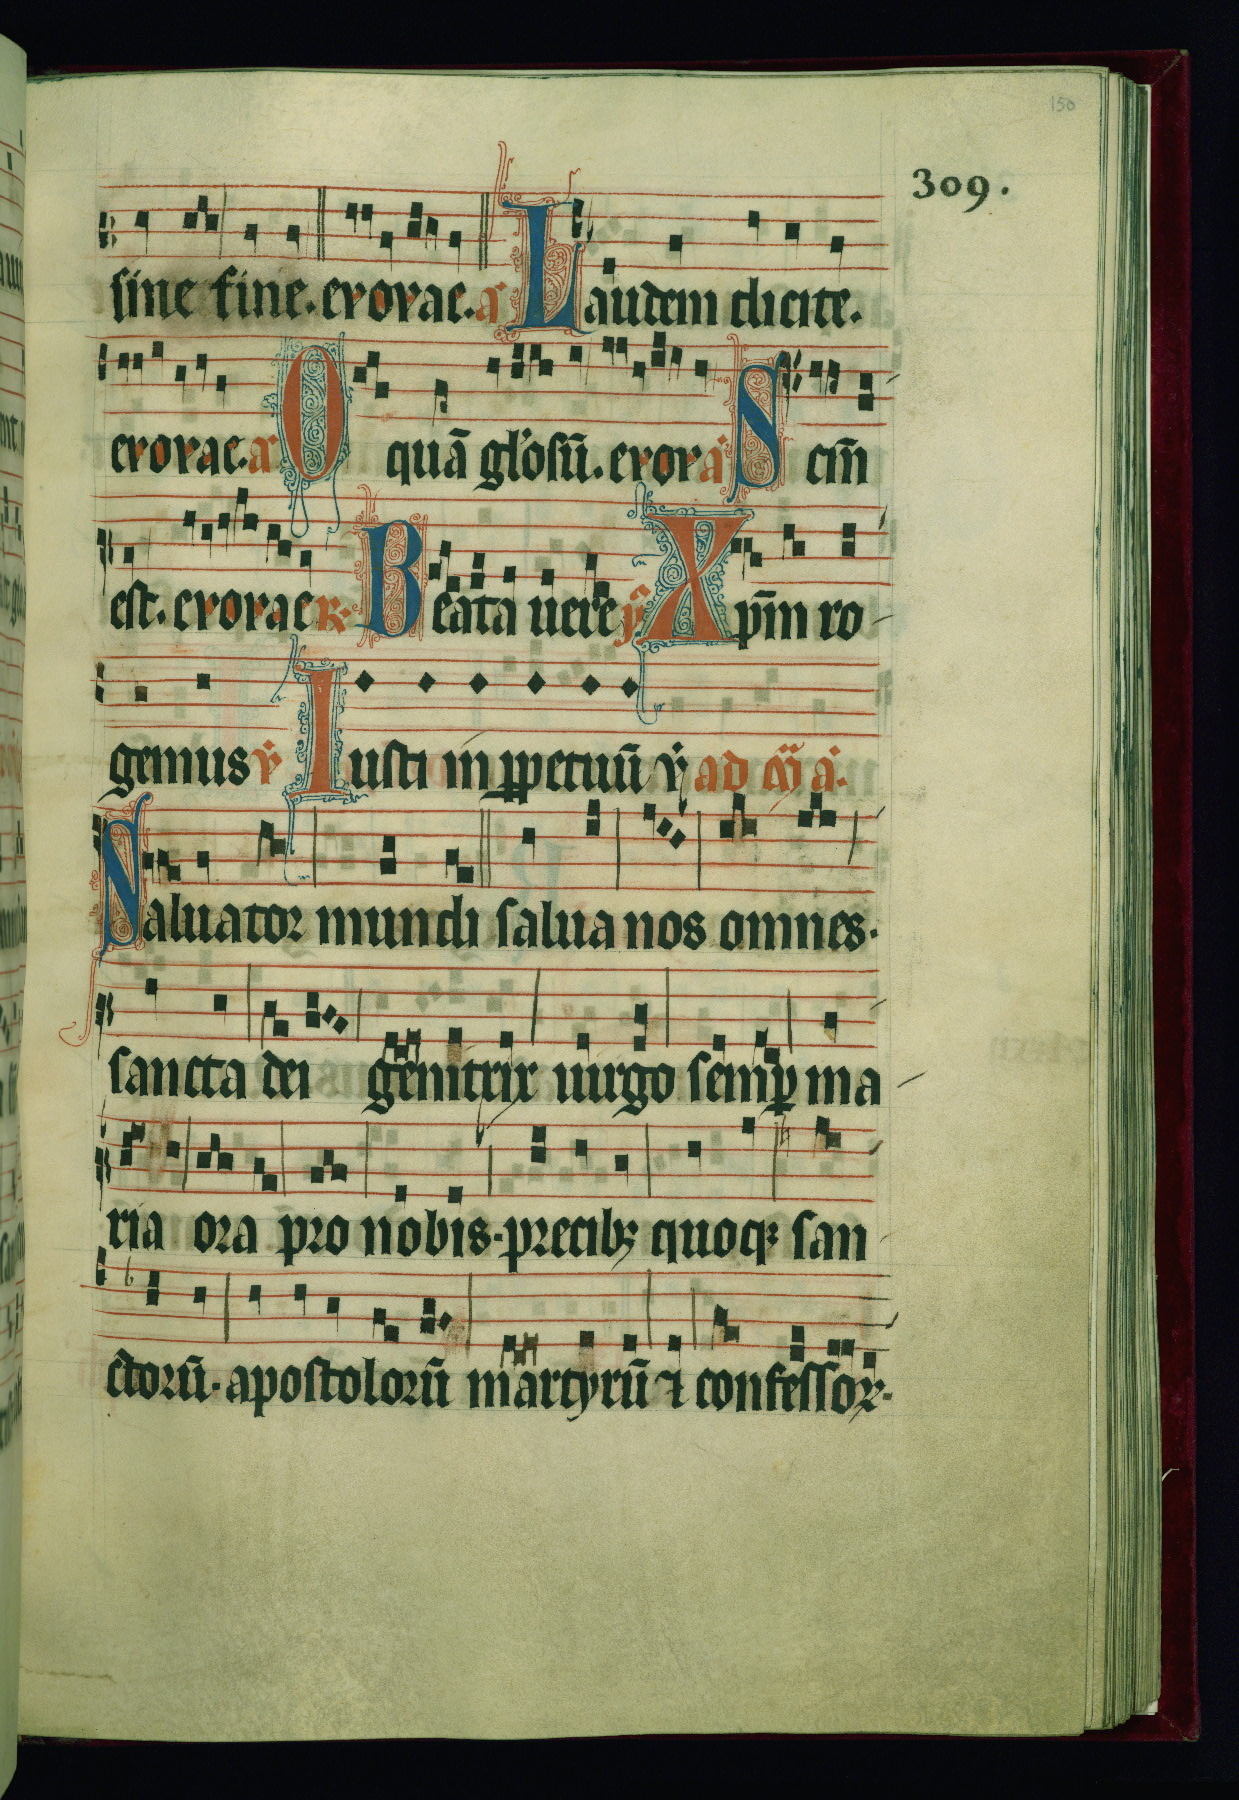 150
309.
sine fine. evovae. a Laudem dicite.
evovae. a O quā gl'osū. evov a S cm̄
est. evovae R. Beata uere v̄ Xpm̄ ro-
gemus v̄ Iusti in ꝑpetuū v̄ ad m̄ a.
Saluator mundi salua nos omnes.
sancta dei genitrix uirgo semꝑ ma
ria ora pro nobis. precibꝫ quoqꝫ san
ctorū. apostolorū martyrū ⁊ confessoꝝ.